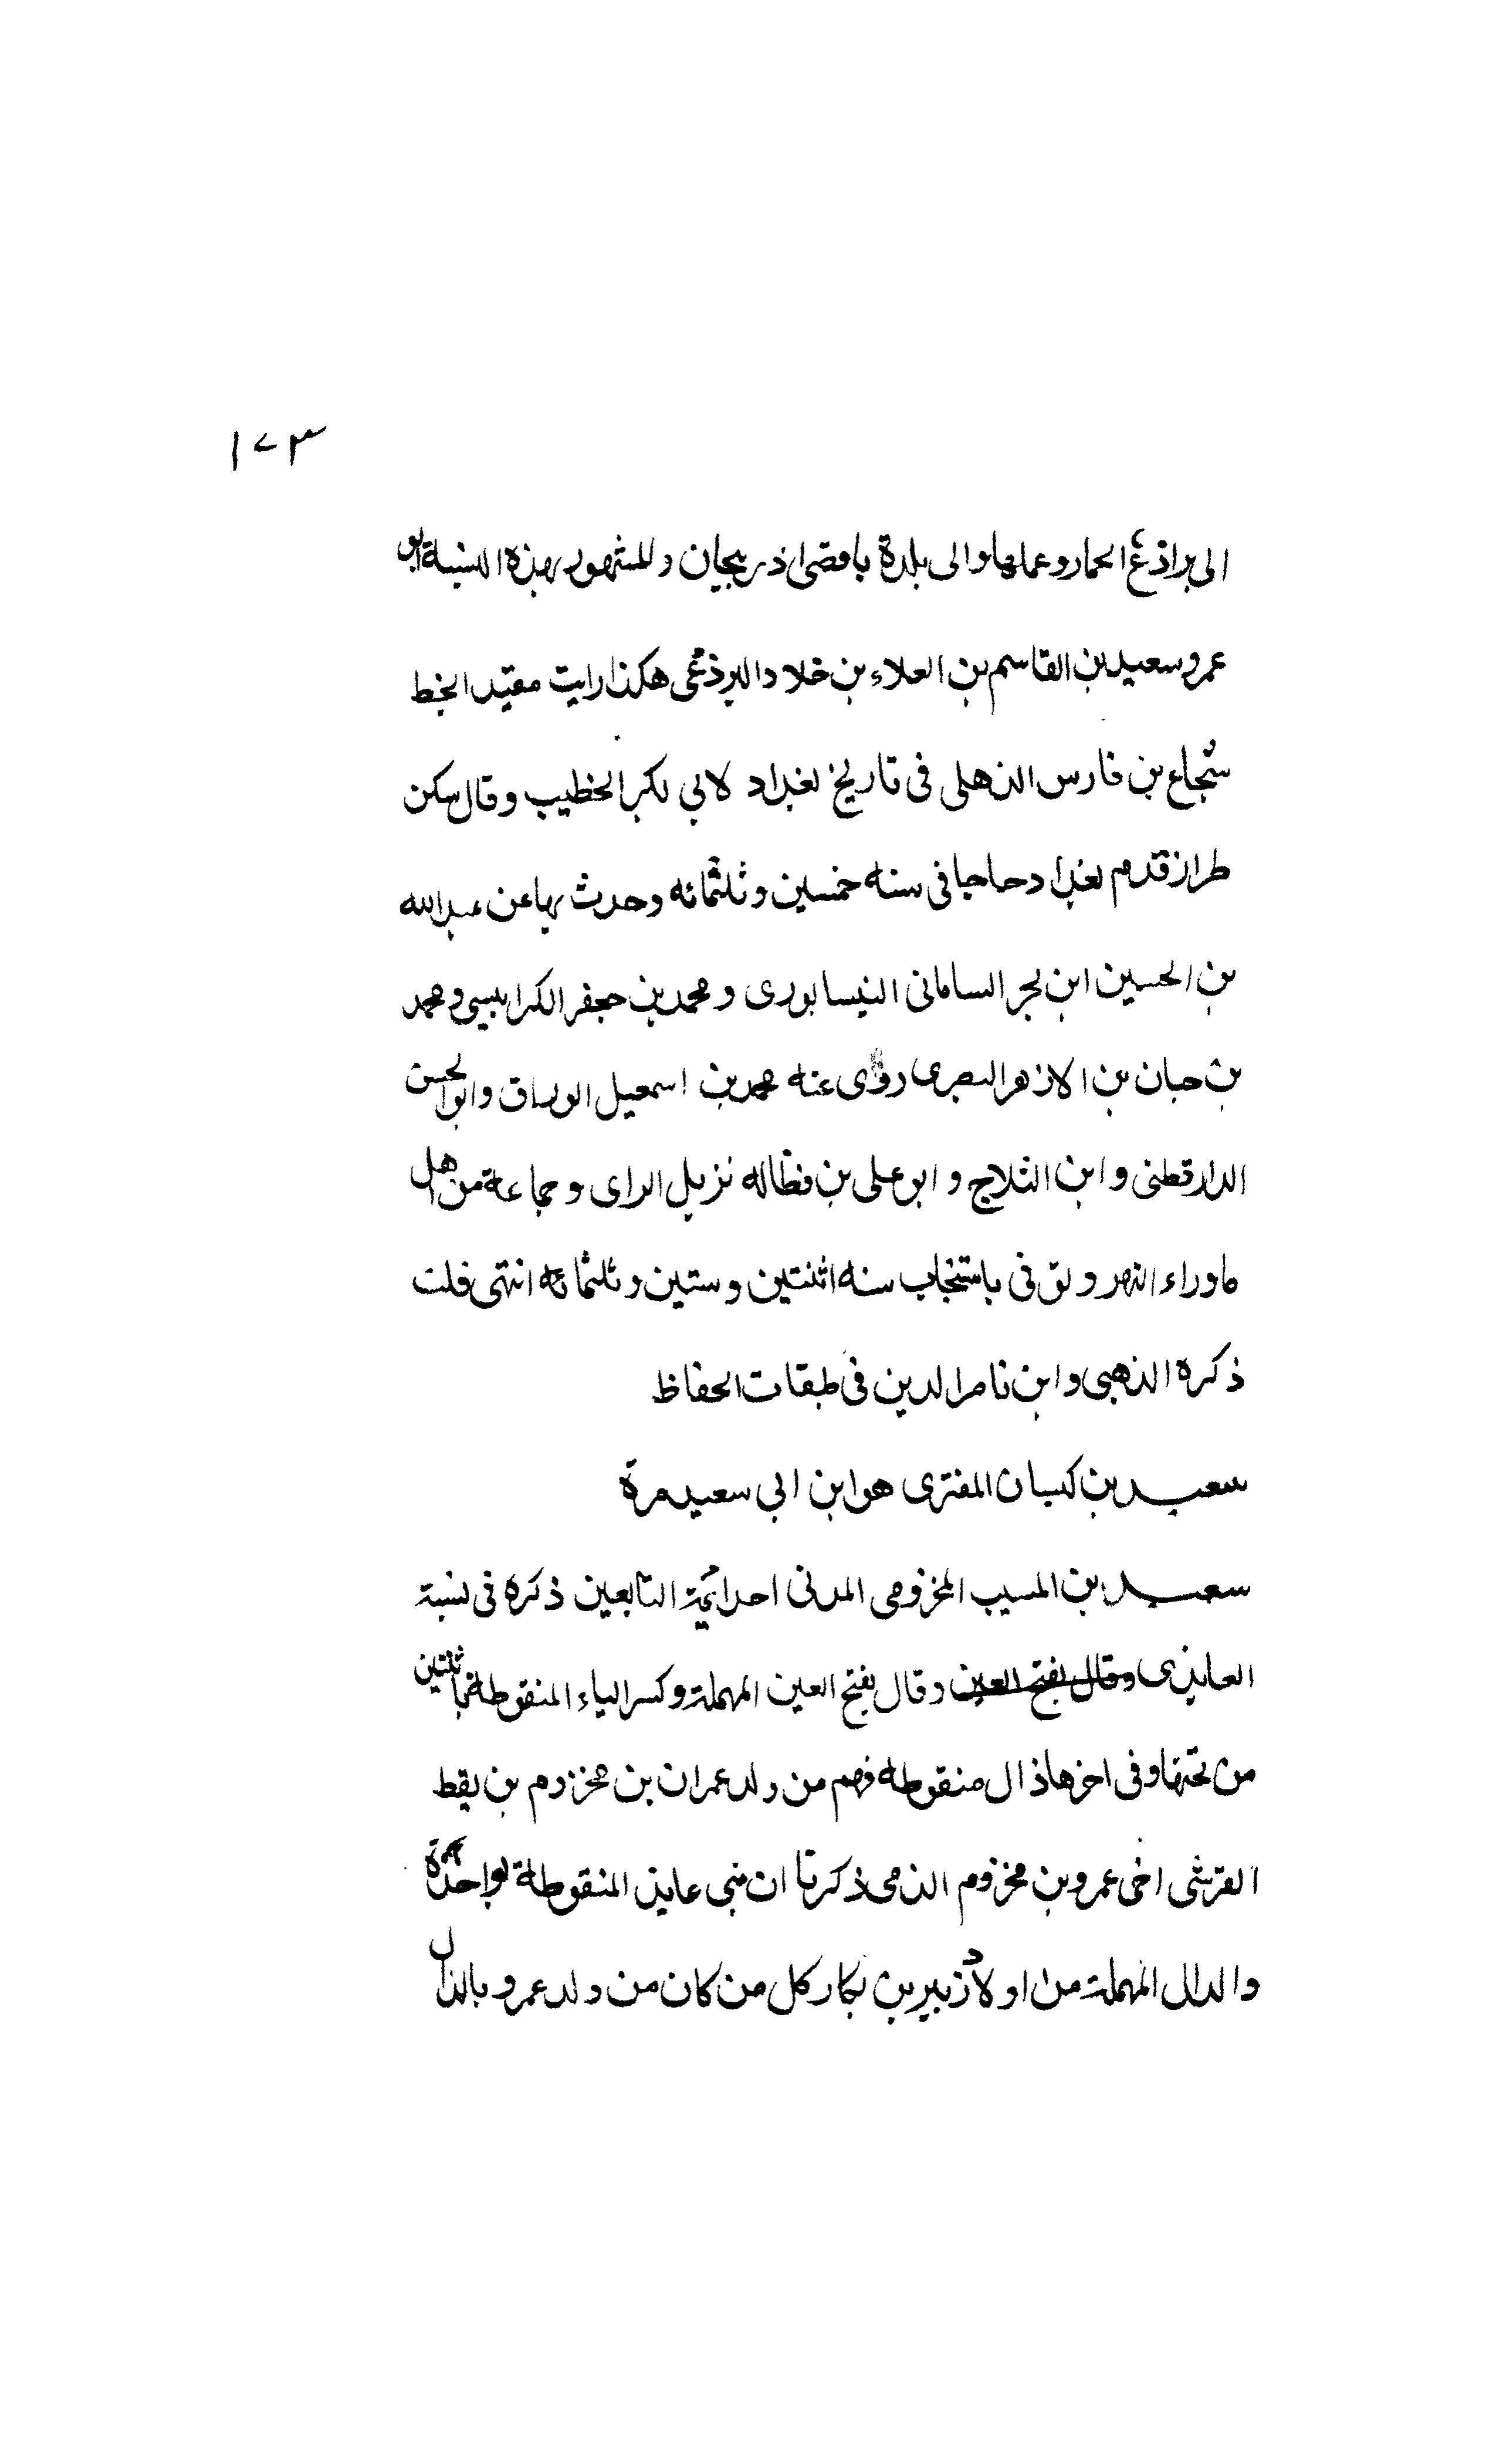 ١٧٣
الى براذع الحمار وعملها والى بلدة باقصى اذربيجان والمشهور بهذه النسبة ابو
عمرو سعيد بن القاسم بن العلاء بن خلاد البرذعى هكذا رايت مقيد الخط
شجاع بن فارس الذهلى فى تاريخ بغداد لابى بكر الخطيب وقال سكن
طراز قدم بغداد حاجا فى سنه خمسين وثلثمائه وحدث بها عن عبد الله
بن الحسين ابن بجر السامانى النيسابورى و محمد بن جعفر الكرابيسى و محمد
بن حبان بن الازهر البصرى روى عنه محمد بن اسمعيل الوراق وابو الحسن
الدارقطنى و ابن الثلاج و ابو على بن فظاله نزيل الراى و جماعة من اهل
ماوراء النهر و توفى باستنجاب سنه اثنتين و ستين و ثلثمائه انتهى قلت
ذكره الذهبى و ابن ناصر الدين فى طبقات الحفاظ
سعيد بن كيسان المقبرى هو ابن ابى سعيد مرة
سعيد بن المسيب المخزومى المدنى احد ائمة التابعين ذكره فى نسبة
العايذى وقال بفتح العين وقال بفتح العين المهملة وكسر الياء المنقوطة باثنتين
من تحتها وفى اخرها ذال منقوطه فهم من ولد عمران بن مخزوم بن يقط
القرشى اخى عمرو بن مخزوم الذى ذكرنا ان بنى عايذ المنقوطة بواحدة
والدال المهملة من اولاد زبير بن بكار كل من كان من ولد عمرو بالذال